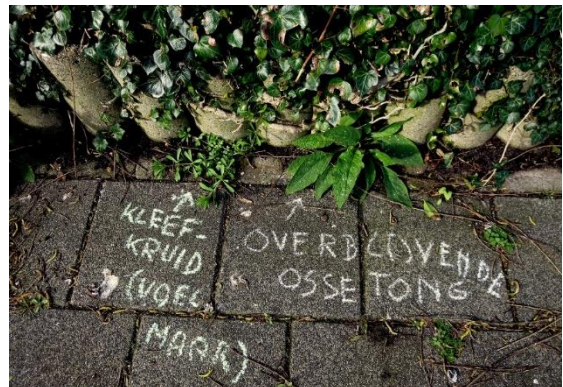 KLEEF-
KRUID
(VOEL
MAAR)
OVERBLIJVENDE
OSSETONG